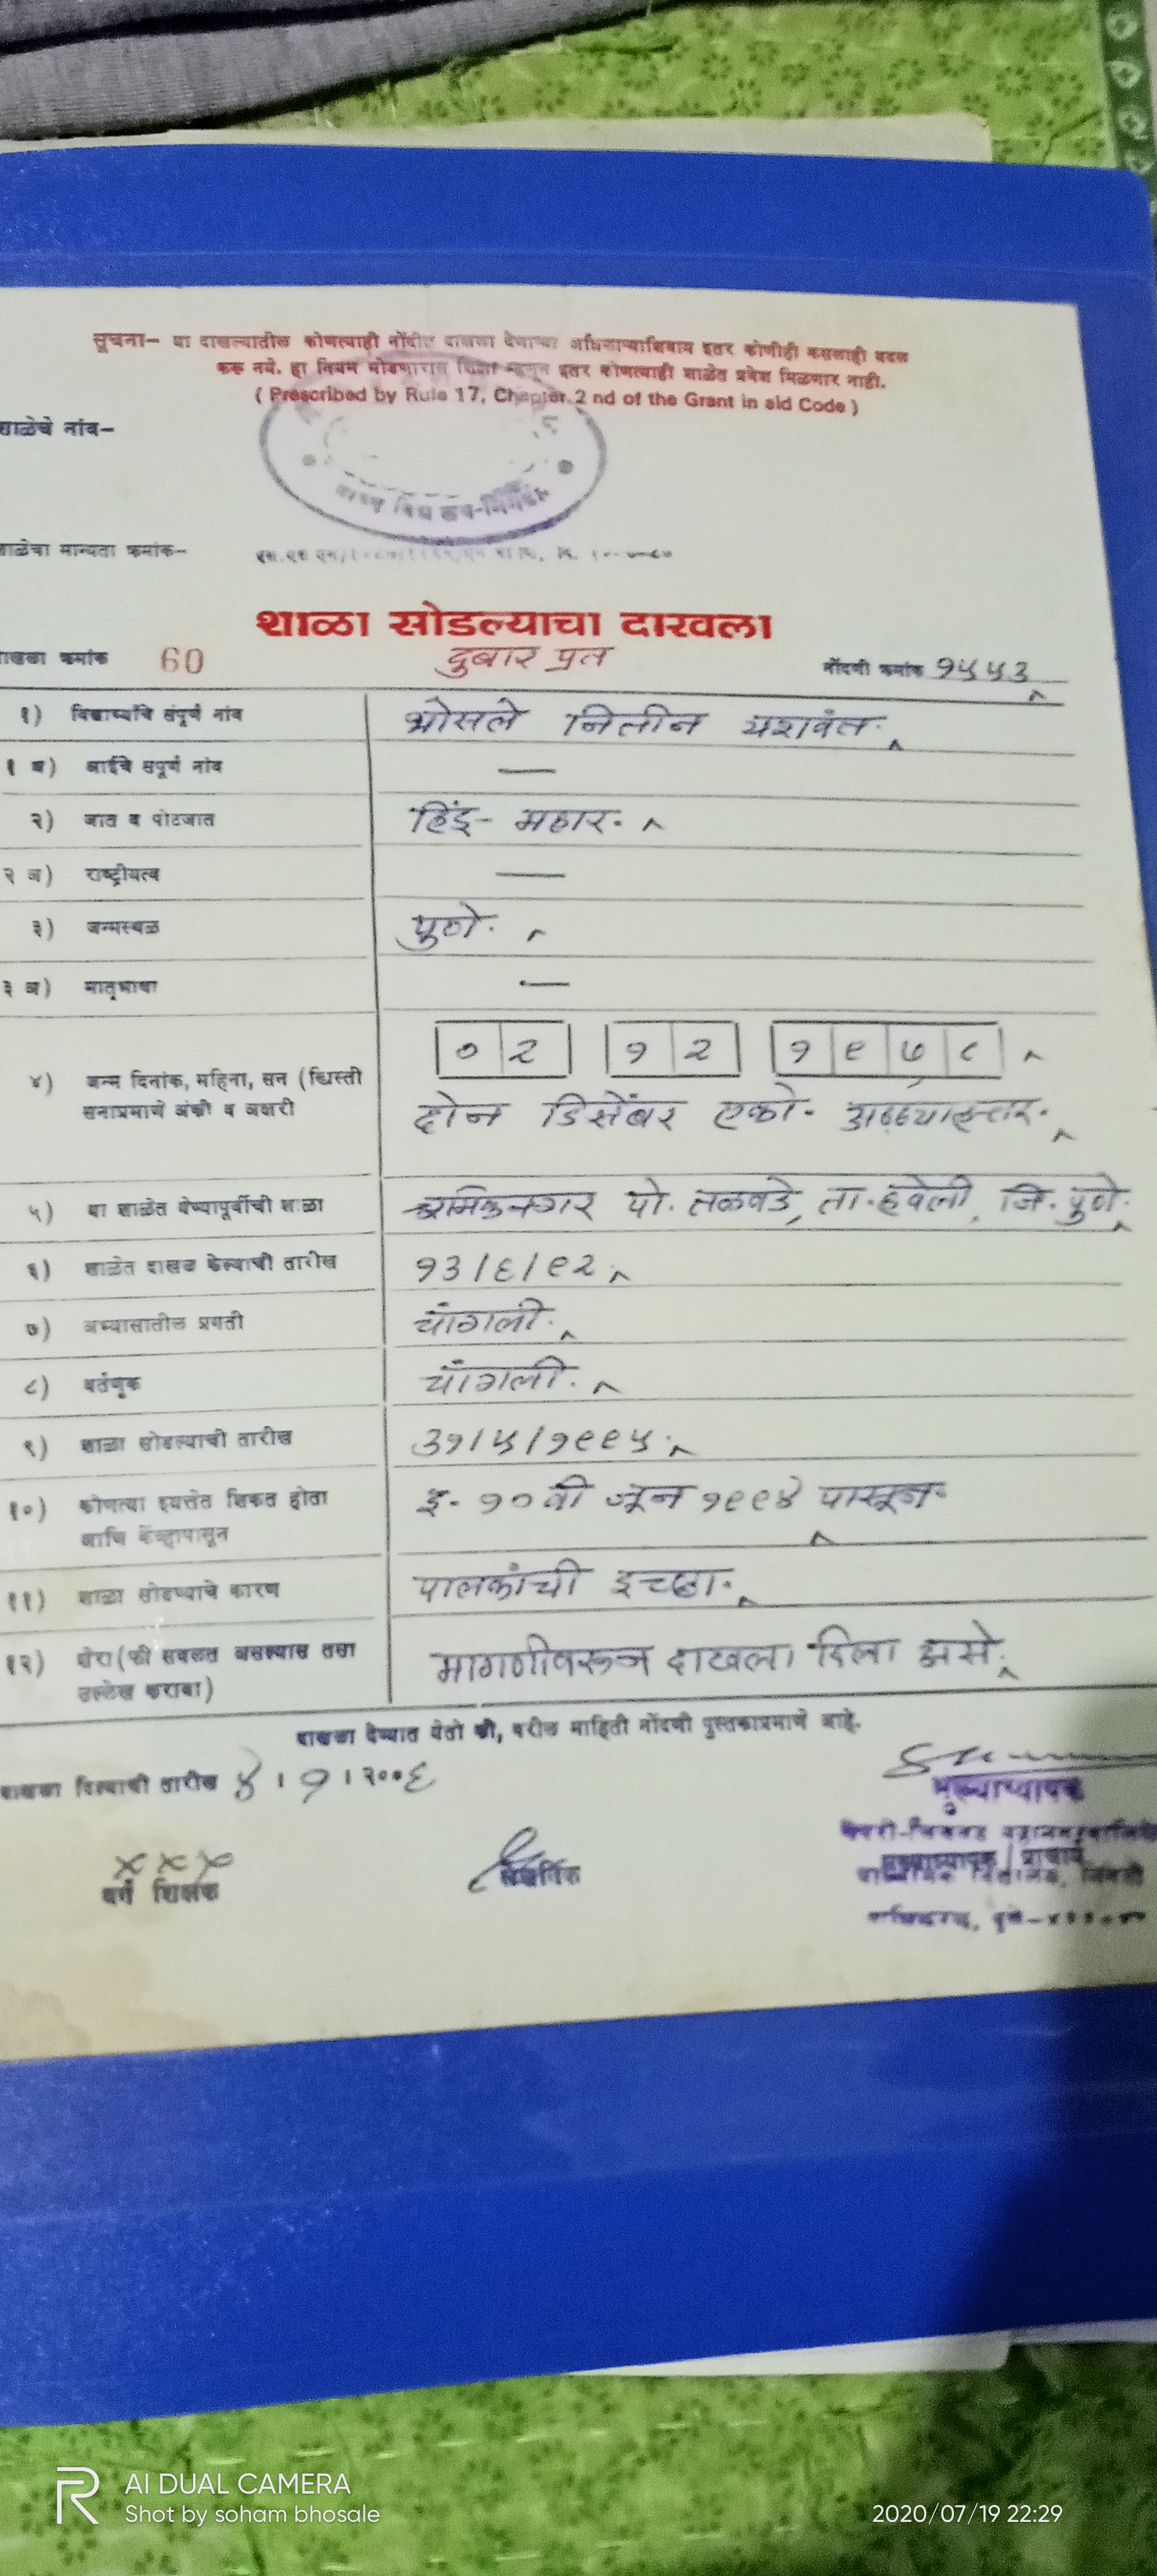 सूचना- या दाखल्यातील कोणत्याही नोंदीत दाखला देणाऱ्या अधिकाऱ्याशिवाय इतर कोणीही कसलाही बदल
करू नये. हा नियम मोडणारास शिक्षा म्हणून इतर कोणत्याही शाळेत प्रवेश मिळणार नाही.
( Prescribed by Rule 17, Chapter 2 nd of the Grant in aid Code )
शाळेचे नांव-
शाळेचा मान्यता क्रमांक-
शाळा सोडल्याचा दाखला
दुबार प्रत
दाखला क्रमांक 60
नोंदणी क्रमांक १५५३
१) विद्यार्थ्याचे संपूर्ण नांव भोसले नितीन यशवंत.
१ अ) आईचे संपूर्ण नांव —
२) जात व पोटजात हिंदू - महार.
२ अ) राष्ट्रीयत्व —
३) जन्मस्थळ पुणे.
३ अ) मातृभाषा —
४) जन्म दिनांक, महिना, सन (ख्रिस्ती ०२ १२ १९७८
सनाप्रमाणे अंकी व अक्षरी दोन डिसेंबर एको- अठ्ठ्याहत्तर.
५) या शाळेत येण्यापूर्वीची शाळा श्रमिकनगर पो. तळवडे, ता. हवेली, जि. पुणे.
६) शाळेत दाखल केल्याची तारीख १३/६/९२
७) अभ्यासातील प्रगती चांगली.
८) वर्तणूक चांगली.
९) शाळा सोडल्याची तारीख ३१/५/१९९५.
१०) कोणत्या इयत्तेत शिकत होता इ. १० वी जून १९९४ पासून
आणि केंव्हापासून
११) शाळा सोडण्याचे कारण पालकांची इच्छा.
१२) शेरा (फी सवलत असल्यास तसा मागणीवरून दाखला दिला असे.
उल्लेख करावा)
दाखला देण्यात येतो की, वरील माहिती नोंदणी पुस्तकाप्रमाणे आहे.
दाखला दिल्याची तारीख ४।१।२००६
xxx
वर्ग शिक्षक
मुख्याध्यापक
मुख्याध्यापक / प्राचार्य
AI DUAL CAMERA
Shot by soham bhosale
2020/07/19 22:29